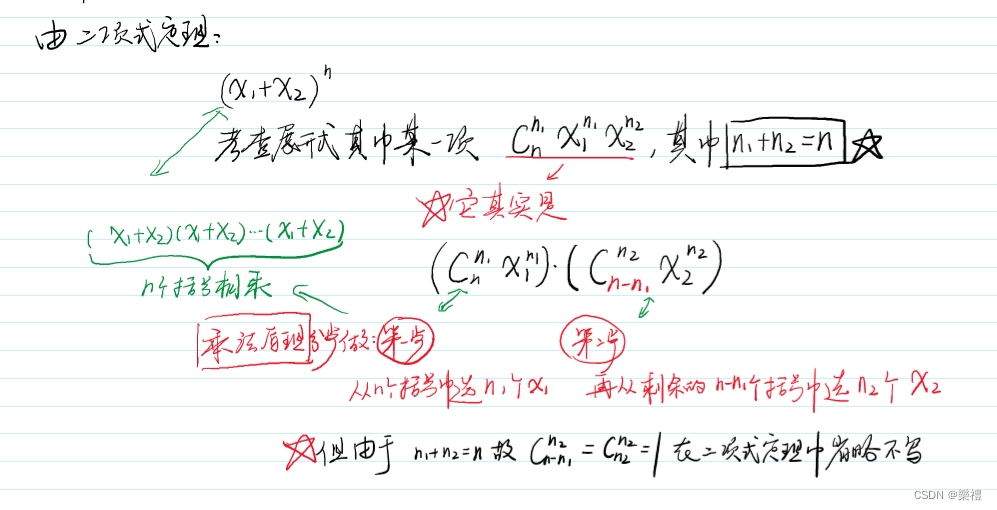 由二项式定理：
(x₁+x₂)ⁿ
考查展开式其中某一项 Cₙⁿ¹ x₁ⁿ¹ x₂ⁿ²，其中 n₁+n₂=n ☆
☆它其实是
(x₁+x₂)(x₁+x₂)…(x₁+x₂)
(Cₙⁿ¹ x₁ⁿ¹)·(Cₙ₋ₙ₁ⁿ² x₂ⁿ²)
n个括号相乘
乘法原理分步做：第一步 第二步
从n个括号中选n₁个x₁ 再从剩余的n-n₁个括号中选n₂个x₂
☆但由于 n₁+n₂=n 故 Cₙ₋ₙ₁ⁿ² = Cₙ₂ⁿ² = 1 在二项式定理中省略不写
CSDN @樂禮